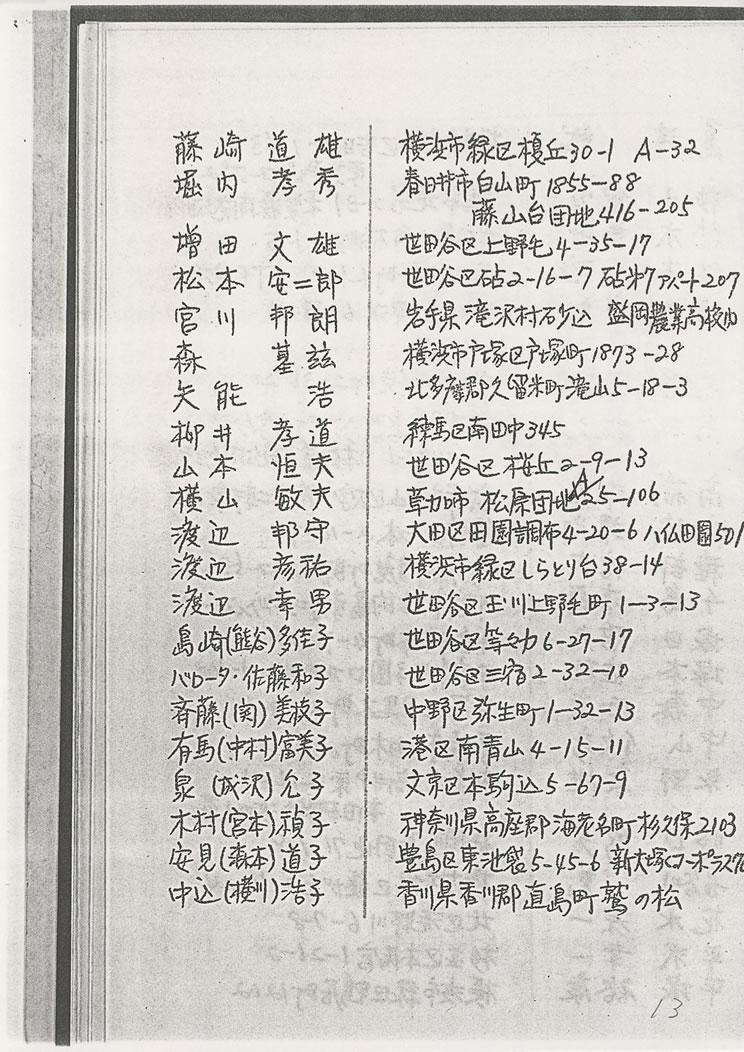 藤崎道雄 横浜市緑区榎丘30-1 A-32
堀内孝秀 春日井市白山町1855-88
藤山台団地416-205
増田文雄 世田谷区上野毛4-35-17
松本安二郎 世田谷区砧2-16-7 砧第7アパート207
宮川邦朗 岩手県滝沢村砂込 盛岡農業高校内
森基茲 横浜市戸塚区戸塚町1873-28
矢能浩 北多摩郡久留米町滝山5-18-3
柳井孝道 練馬区南田中345
山本恒夫 世田谷区桜丘2-9-13
横山敏夫 草加市 松原団地A25-106
渡辺邦守 大田区田園調布4-20-6 ハイム田園501
渡辺彦祐 横浜市緑区しらとり台38-14
渡辺幸男 世田谷区玉川上野毛町1-3-13
島崎(熊谷)多佳子 世田谷区等々力6-27-17
バロータ・佐藤和子 世田谷区三宿2-32-10
斉藤(関)美枝子 中野区弥生町1-32-13
有馬(中村)富美子 港区南青山4-15-11
泉(成沢)允子 文京区本駒込5-67-9
木村(宮本)禎子 神奈川県高座郡海老名町杉久保2103
安見(森本)道子 豊島区東池袋5-45-6 新大塚コーポラス
中込(横川)浩子 香川県香川郡直島町鷲の松
13